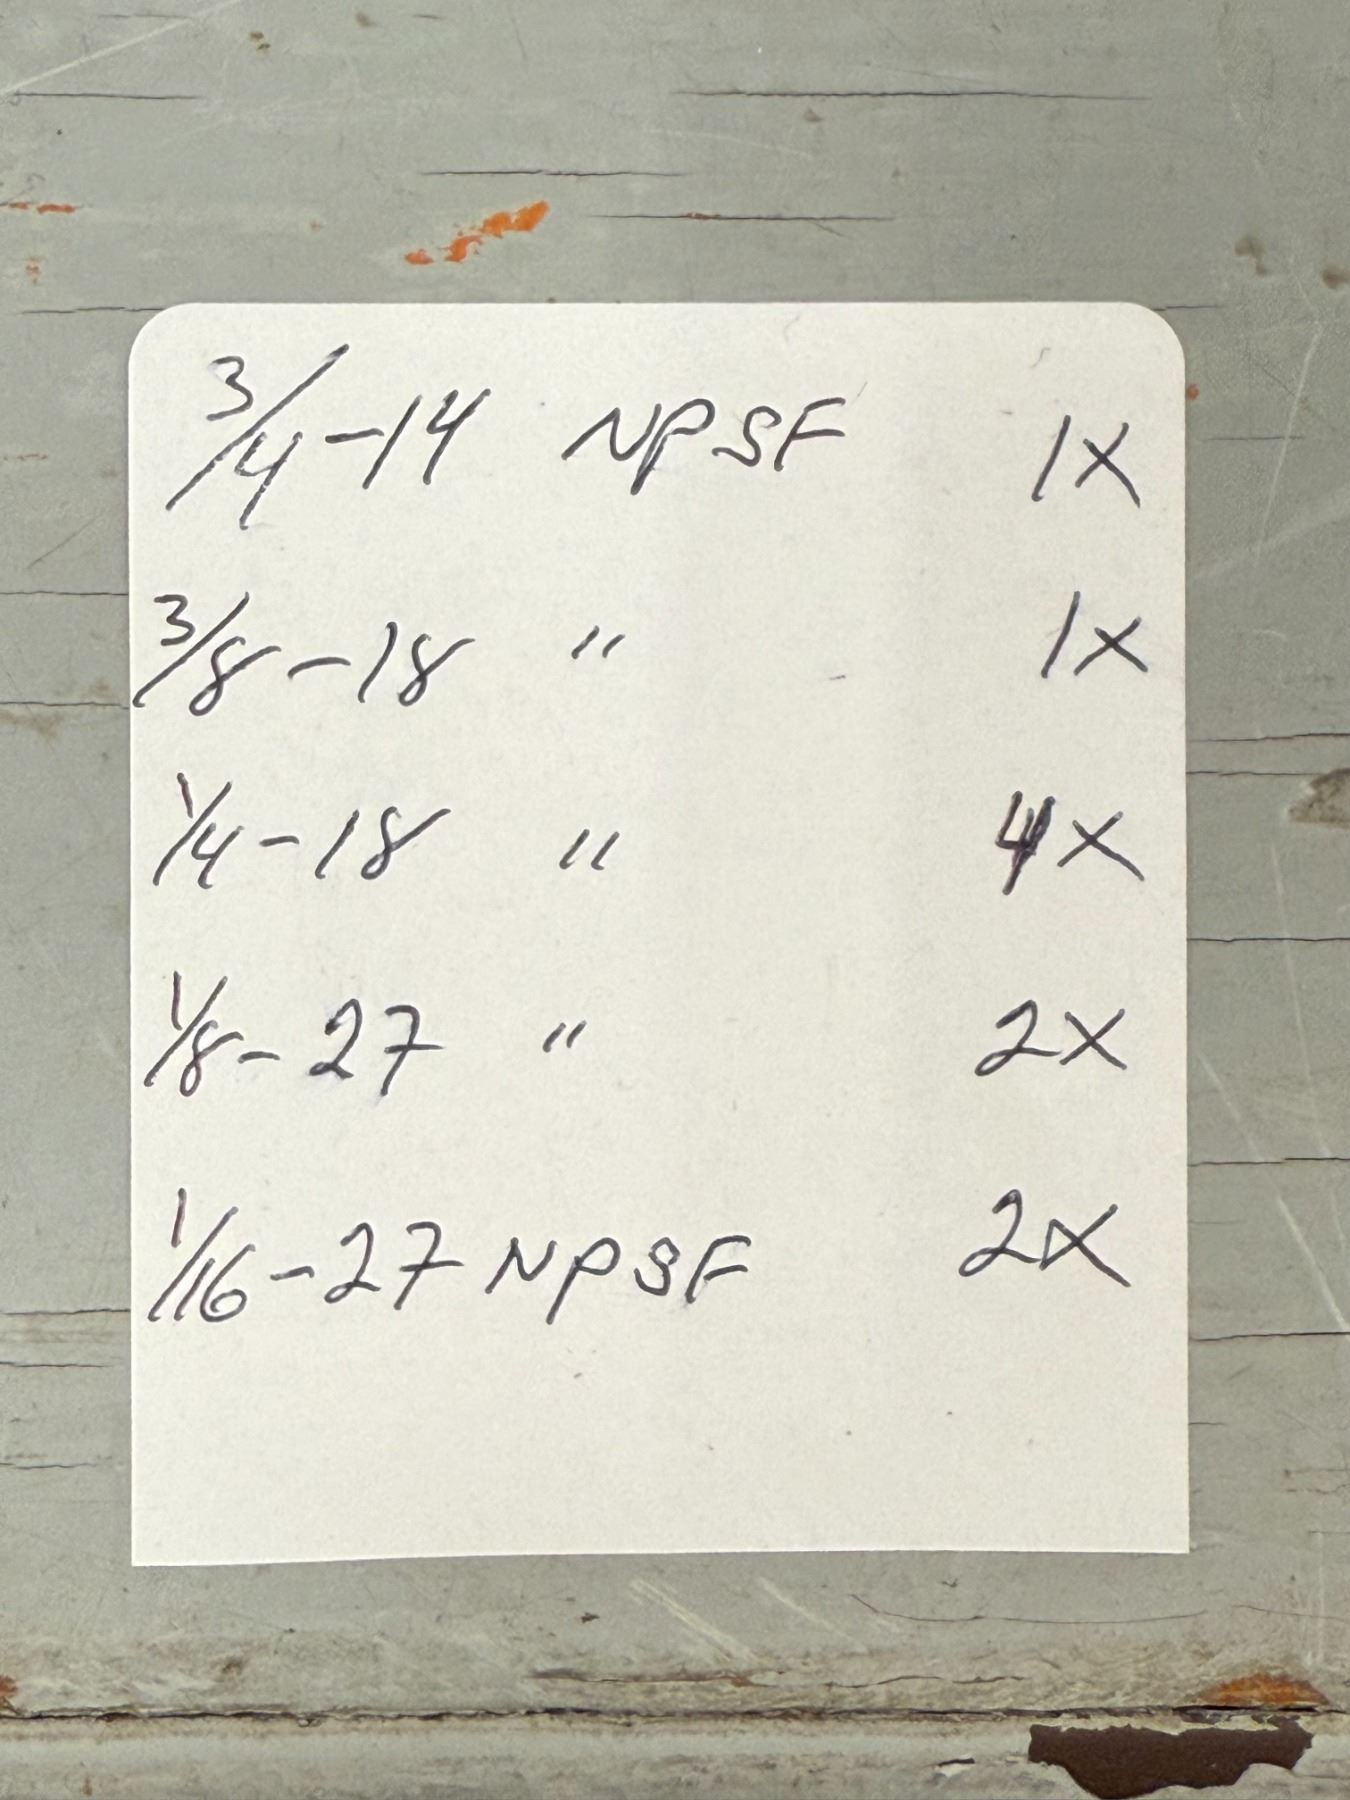 3/4-14 NPSF 1X
3/8-18 " 1X
1/4-18 " 4X
1/8-27 " 2X
1/16-27 NPSF 2X